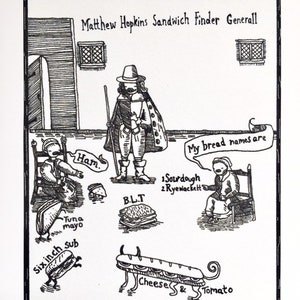 Matthew Hopkins Sandwich Finder Generall
Ham
My bread names are
1 Sourdough
2 Ryewackett
B.L.T
Tuna
mayo
six inch sub
Cheese & Tomato